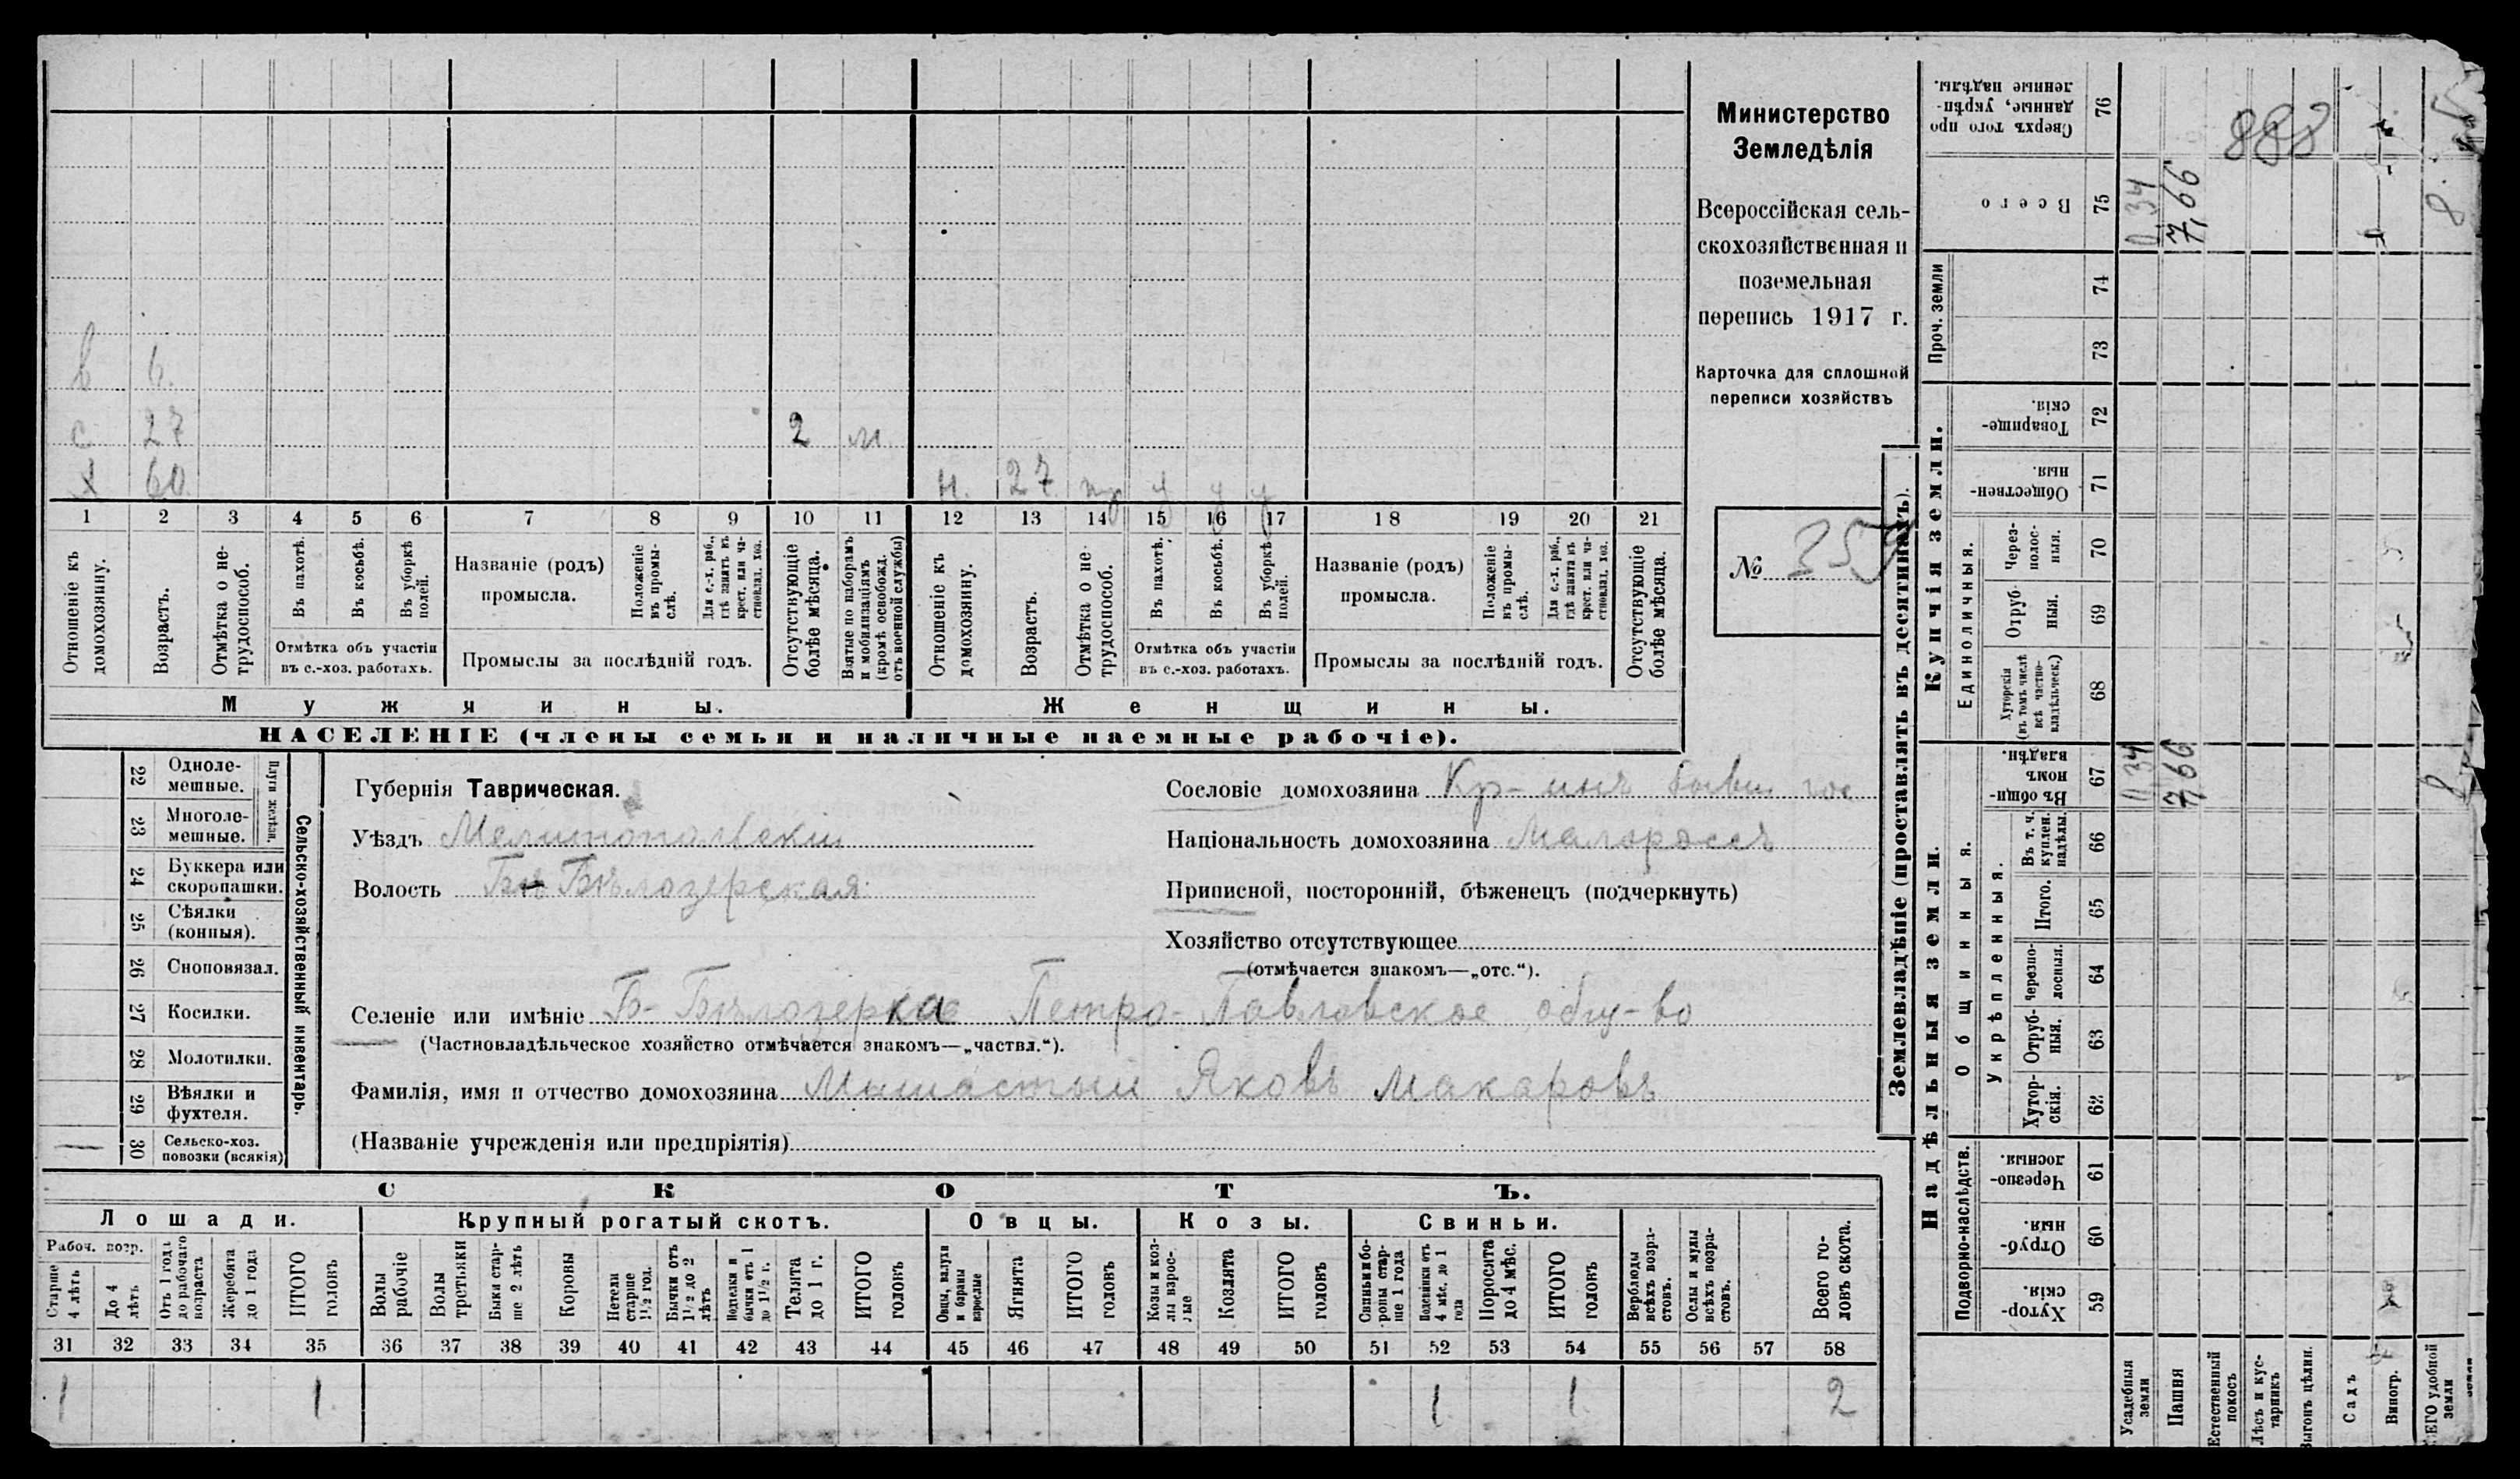 Министерство
Земледѣлія
Всероссійская сель-
скохозяйственная и
поземельная
перепись 1917 г.
Карточка для сплошной
переписи хозяйствъ
№ 359
в 6.
с 27 2 м.
х 60 н. 27
1 2 3 4 5 6 7 8 9 10 11 12 13 14 15 16 17 18 19 20 21
Отношеніе къ домохозяину.
Возрастъ.
Отмѣтка о не-трудоспособ.
Въ пахотѣ.
Въ косьбѣ.
Въ уборкѣ полей.
Отмѣтка объ участіи
въ с.-хоз. работахъ.
Названіе (родъ)
промысла.
Положеніе въ промы-слѣ.
Для с.-х. раб., гдѣ занятъ въ крест. или ча-стновлад. хоз.
Промыслы за послѣдній годъ.
Отсутствующіе болѣе мѣсяца.
Взятые по наборамъ и мобилизаціямъ (кромѣ освобожд. отъ военной службы)
Отношеніе къ домохозяину.
Возрастъ.
Отмѣтка о не-трудоспособ.
Въ пахотѣ.
Въ косьбѣ.
Въ уборкѣ полей.
Отмѣтка объ участіи
въ с.-хоз. работахъ.
Названіе (родъ)
промысла.
Положеніе въ промы-слѣ.
Для с.-х. раб., гдѣ занята въ крест. или ча-стновлад. хоз.
Промыслы за послѣдній годъ.
Отсутствующіе болѣе мѣсяца.
Мужчины. Женщины.
НАСЕЛЕНІЕ (члены семьи и наличные наемные рабочіе).
Сельско-хозяйственный инвентарь.
Плуги желѣзн.
22 Одноле-мешные.
23 Многоле-мешные.
24 Буккера или скоропашки.
25 Сѣялки (конныя).
26 Сноповязал.
27 Косилки.
28 Молотилки.
29 Вѣялки и фухтеля.
30 Сельско-хоз. повозки (всякія)
Губернія Таврическая.
Уѣздъ Мелитопольскій
Волость Бѣ Бѣлозерская
Сословіе домохозяина Кр-инъ бывш гос
Національность домохозяина Малороссъ
Приписной, посторонній, бѣженецъ (подчеркнуть)
Хозяйство отсутствующее
(отмѣчается знакомъ—„отс.“).
Селеніе или имѣніе Б-Бѣлозерка Петро-Павловское общ-во
(Частновладѣльческое хозяйство отмѣчается знакомъ—„частвл.“).
Фамилія, имя и отчество домохозяина Мишастый Яковъ Макаровъ
(Названіе учрежденія или предпріятія)
СКОТЪ.
Лошади. Крупный рогатый скотъ. Овцы. Козы. Свиньи.
Рабоч. возр.
Старше 4 лѣтъ
До 4 лѣтъ
Отъ 1 года до рабочаго возраста
Жеребята до 1 года
ИТОГО головъ
Волы рабочіе
Волы третьяки
Быки стар-ше 2 лѣтъ
Коровы
Нетели старше 1½ год.
Бычки отъ 1½ до 2 лѣтъ
Подтелки и бычки отъ 1 до 1½ г.
Телята до 1 г.
ИТОГО головъ
Овцы, валухи и бараны взрослые
Ягнята
ИТОГО головъ
Козы и коз-лы взрос-лые
Козлята
ИТОГО головъ
Свиньи и бо-ровы стар-ше 1 года
Подсвинки отъ 4 мѣс. до 1 года
Поросята до 4 мѣс.
ИТОГО головъ
Верблюды всѣхъ возра-стовъ.
Ослы и мулы всѣхъ возра-стовъ.
Всего го-ловъ скота.
31 32 33 34 35 36 37 38 39 40 41 42 43 44 45 46 47 48 49 50 51 52 53 54 55 56 57 58
1 1 1 1 2
Землевладѣніе (проставлять въ десятинахъ).
Надѣльныя земли.
Купчія земли.
Проч. земли
Подворно-наслѣдств.
Общинныя.
Укрѣпленныя.
Единоличныя.
Сверхъ того про данные, укрѣп-ленные надѣлы. 76
Всего 75 0,34 7,66 8.
74
73
Товарище-скія. 72
Обществен-ныя. 71
Через-полос-ныя. 70
Отруб-ныя. 69
Хуторскія (въ томъ числѣ всѣ частно-владѣльческ.) 68
Въ общи-номъ владѣн. 67 0,34 7,66 8
Въ т. ч. куплен. надѣлы. 66
Итого. 65
Черезпо-лосныя. 64
Отруб-ныя. 63
Хутор-скія. 62
Черезпо-лосныя. 61
Отруб-ныя. 60
Хутор-скія. 59
Усадебныя земли
Пашня
Естественный покосъ
Лѣсъ и кус-тарникъ
Выгонъ цѣлин.
Садъ
Виногр.
ВСЕГО удобной земли
888